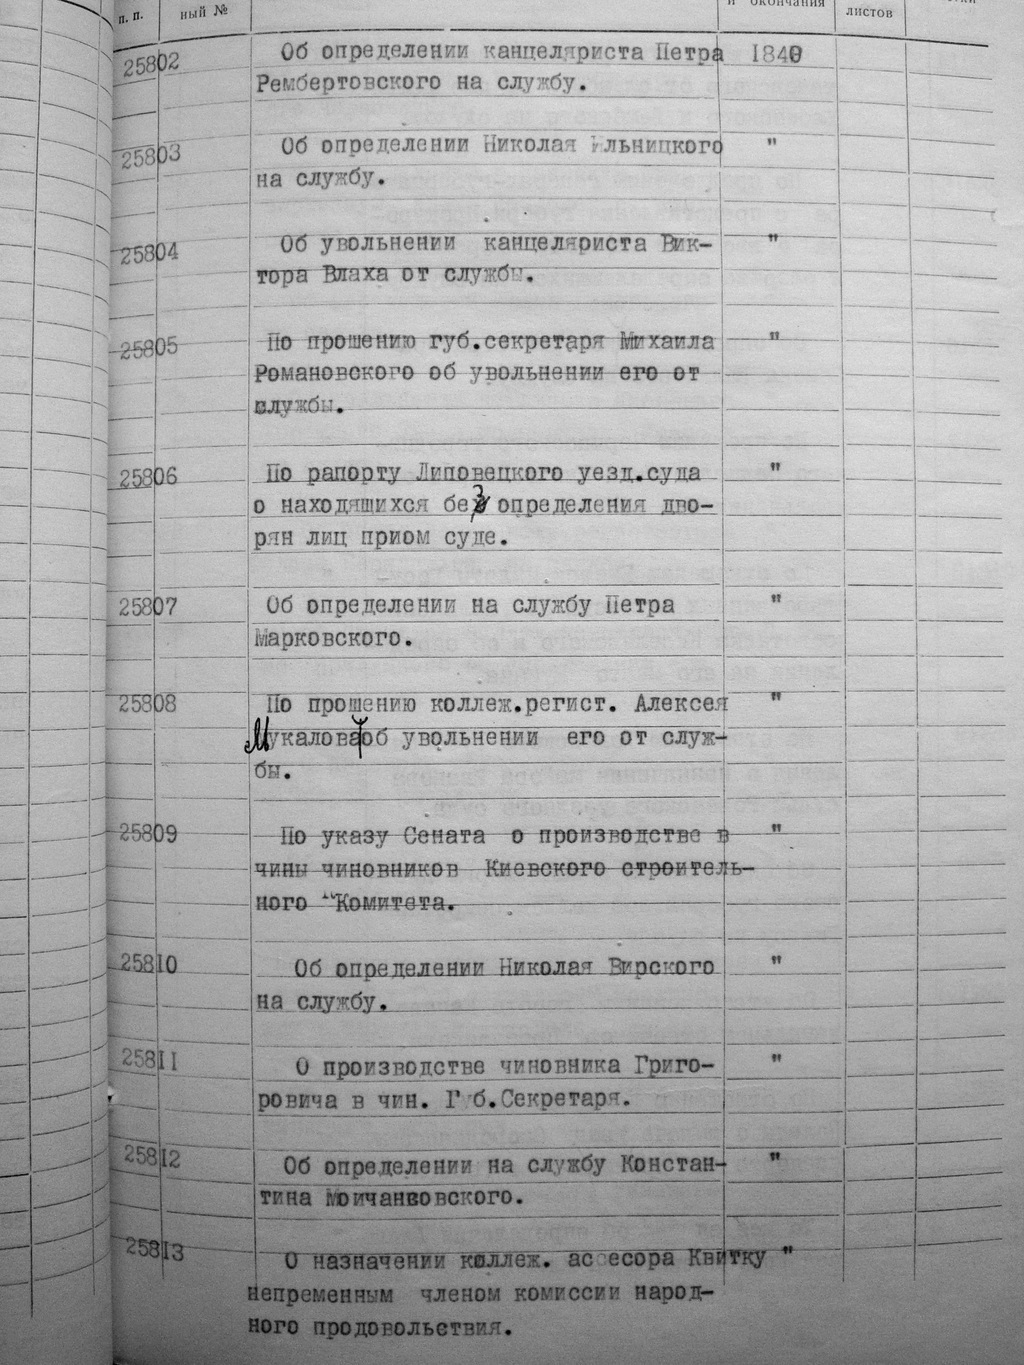 п. п. ный № и окончания листов
25802 Об определении канцеляриста Петра 1840
Рембертовского на службу.
25803 Об определении Николая Ильницкого "
на службу.
25804 Об увольнении канцеляриста Вик- "
тора Влаха от службы.
25805 По прошению губ.секретаря Михаила "
Романовского об увольнении его от
службы.
25806 По рапорту Липовецкого уезд.суда "
о находящихся без определения дво-
рян лиц приом суде.
25807 Об определении на службу Петра "
Марковского.
25808 По прошению коллеж.регист. Алексея "
Мукалова об увольнении его от служ-
бы.
25809 По указу Сената о производстве в "
чины чиновников Киевского строитель-
ного Комитета.
25810 Об определении Николая Вирского "
на службу.
25811 О производстве чиновника Григо- "
ровича в чин. Губ.Секретаря.
25812 Об определении на службу Констан- "
тина Мойчанковского.
25813 О назначении коллеж. ассесора Квитку "
непременным членом комиссии народ-
ного продовольствия.